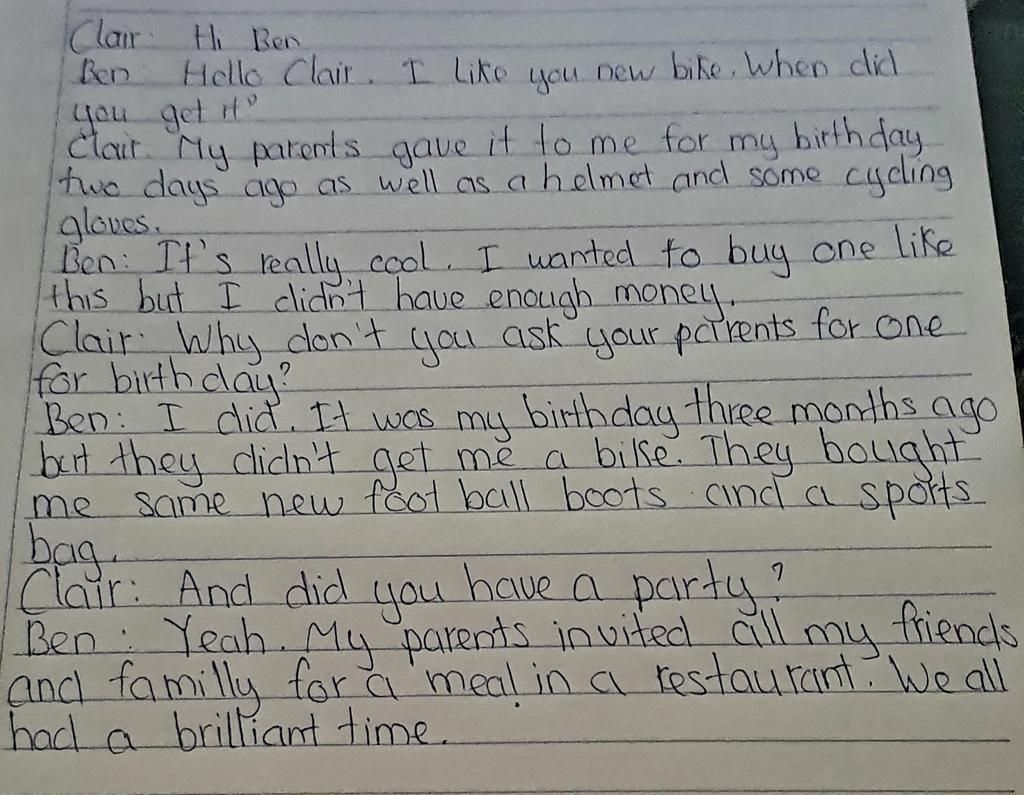 Clair: Hi Ben
Ben: Hello Clair. I like you new bike. When did
you get it?
Clair: My parents gave it to me for my birthday
two days ago as well as a helmet and some cycling
gloves.
Ben: It's really cool. I wanted to buy one like
this but I didn't have enough money.
Clair: Why don't you ask your parents for one
for birthday?
Ben: I did. It was my birthday three months ago
but they didn't get me a bike. They bought
me same new foot ball boots and a sports
bag.
Clair: And did you have a party?
Ben: Yeah. My parents invited all my friends
and familly for a meal in a restaurant. We all
had a brilliant time.